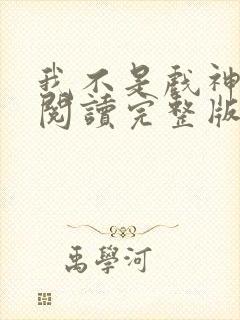 我不是戲神
閱讀完整版
禹學河